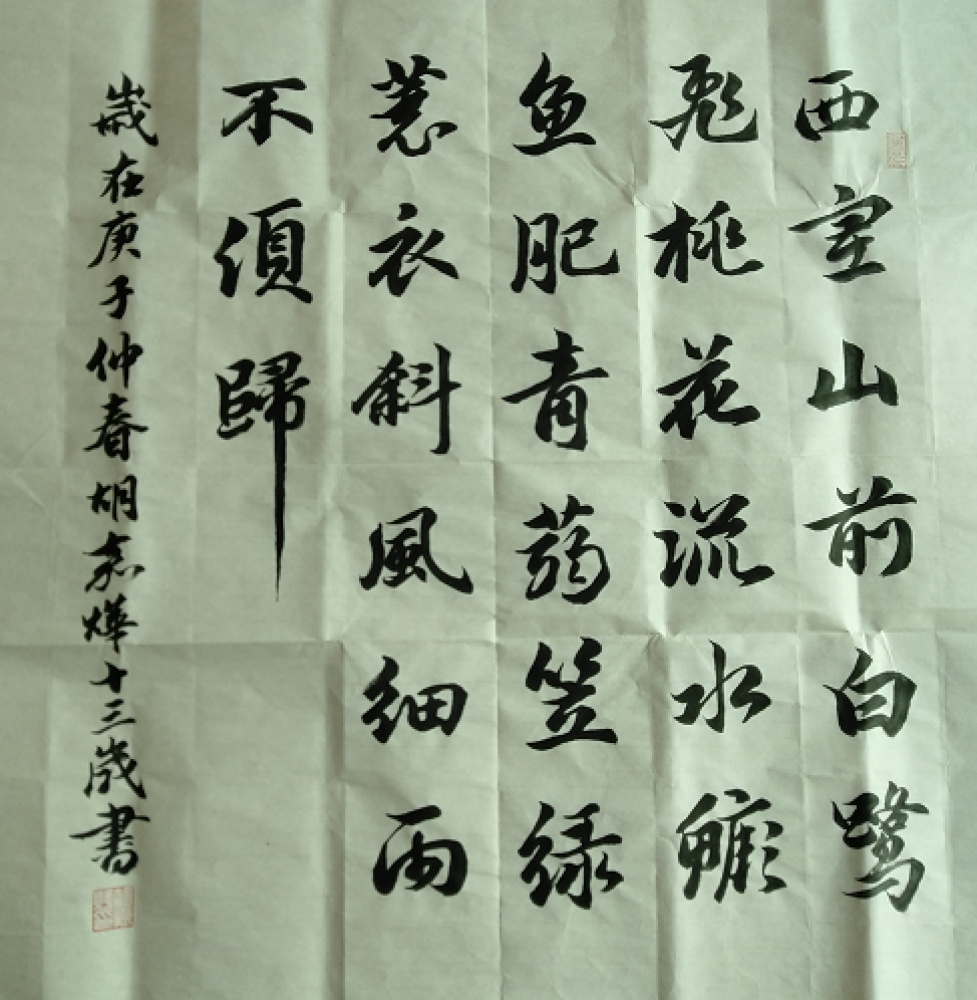 西塞山前白鷺
飛桃花流水鱖
鱼肥青蒻笠緑
蓑衣斜風細雨
不須歸
歲在庚子仲春胡嘉燁十三歲書